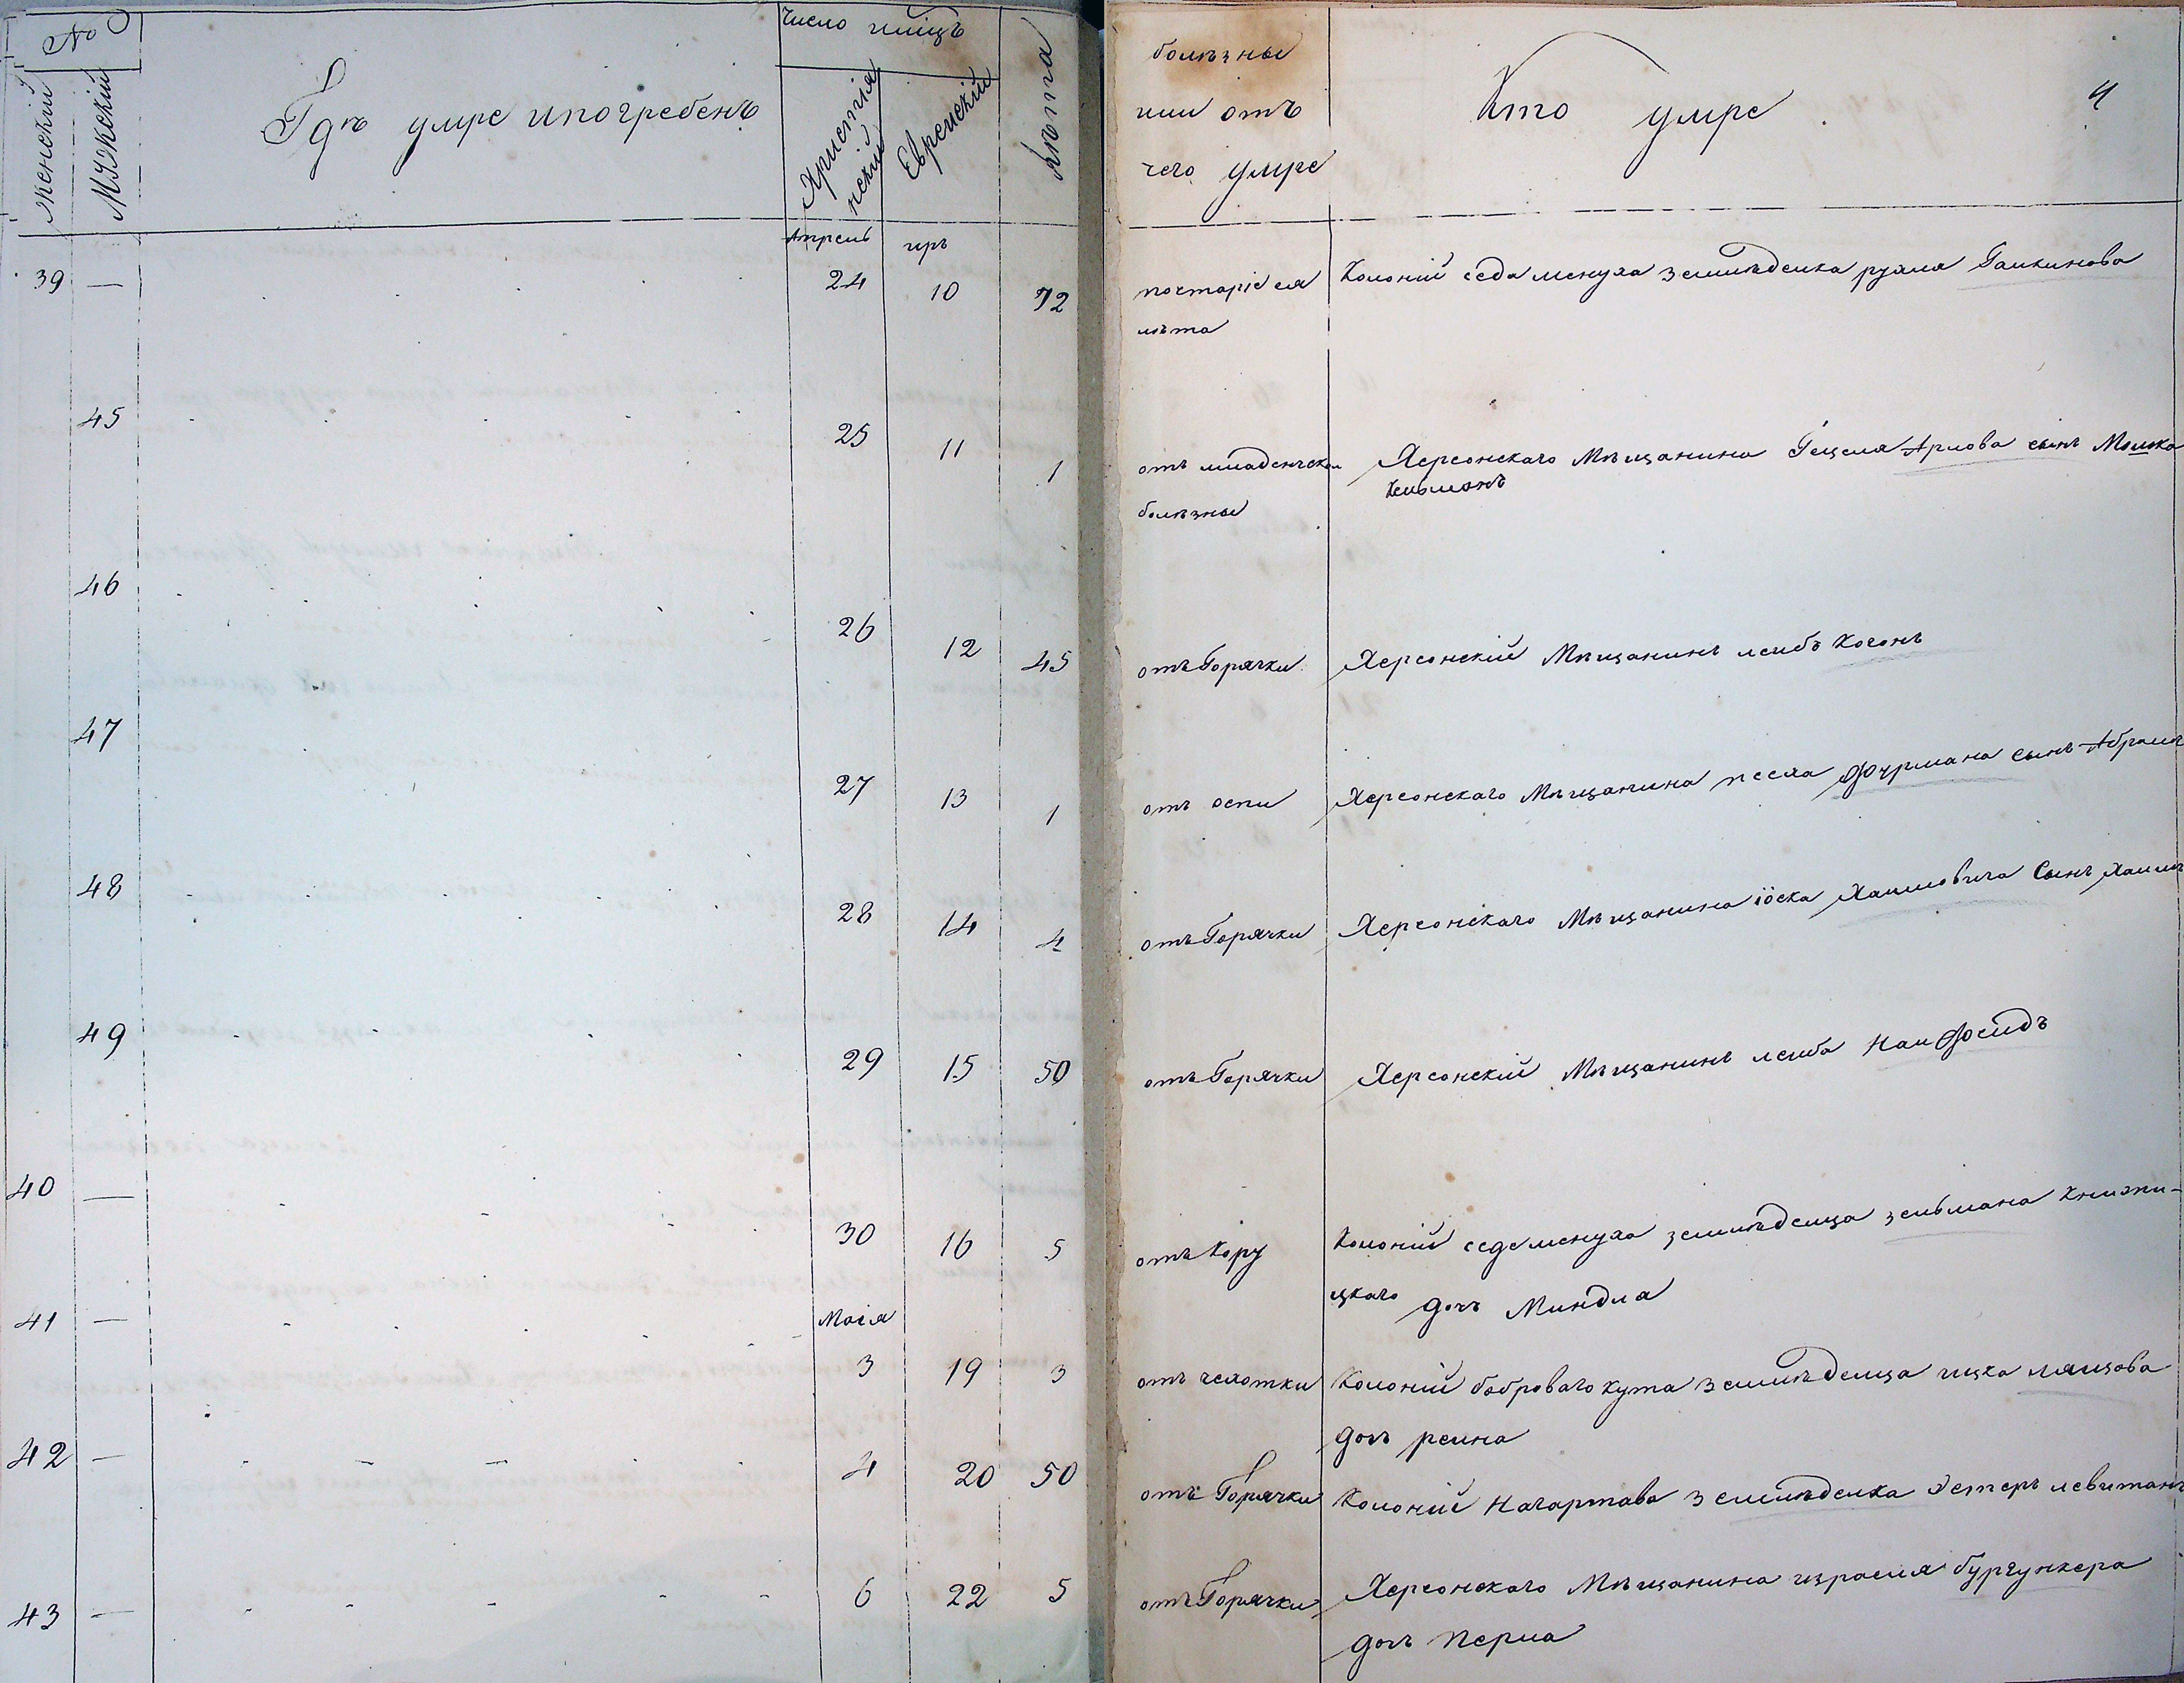 №
женский
Мужский
Гдѣ умре и погребенъ
Число и мцъ
Християнский
Еврейский
Лѣта
болѣзные
или отъ
чего умре
Кто умре
4
Апрель иръ
39 — 24 10 72 по старіе ея Колоній седа менуха земледелка рухля Галкинова
лѣта
45 25 11 1 отъ младенческои Херсонскаго Мѣщанина Гецеля Арлова сынъ Мошка
болѣзные Кельманъ
46 26 12 45 отъ Горячки Херсонский Мѣщанинъ леибъ Когонъ
47 27 13 1 отъ оспи Херсонскаго Мѣщанина песха Фурмана сынъ Абрамъ
48 28 14 4 отъ Горячки Херсонскаго Мѣщанина іоска Хаимовича Сынъ Хаимъ
49 29 15 50 отъ Горячки Херсонский Мѣщанинъ леиба Наифеидъ
40 — 30 16 5 отъ Кору Колоній седеменуха земледелца зельмана Книжни-
цкаго дочъ Миндла
41 — Маія
3 19 3 отъ чехотки Колоній бобраваго кута земледелца ицка
дочъ реина
42 — 4 20 50 отъ Горячки Колоній Нагартава земледелка Эстеръ левитанъ
43 — 6 22 5 отъ Горячки Херсонскаго Мѣщанина израеля бургункера
дочъ Перла